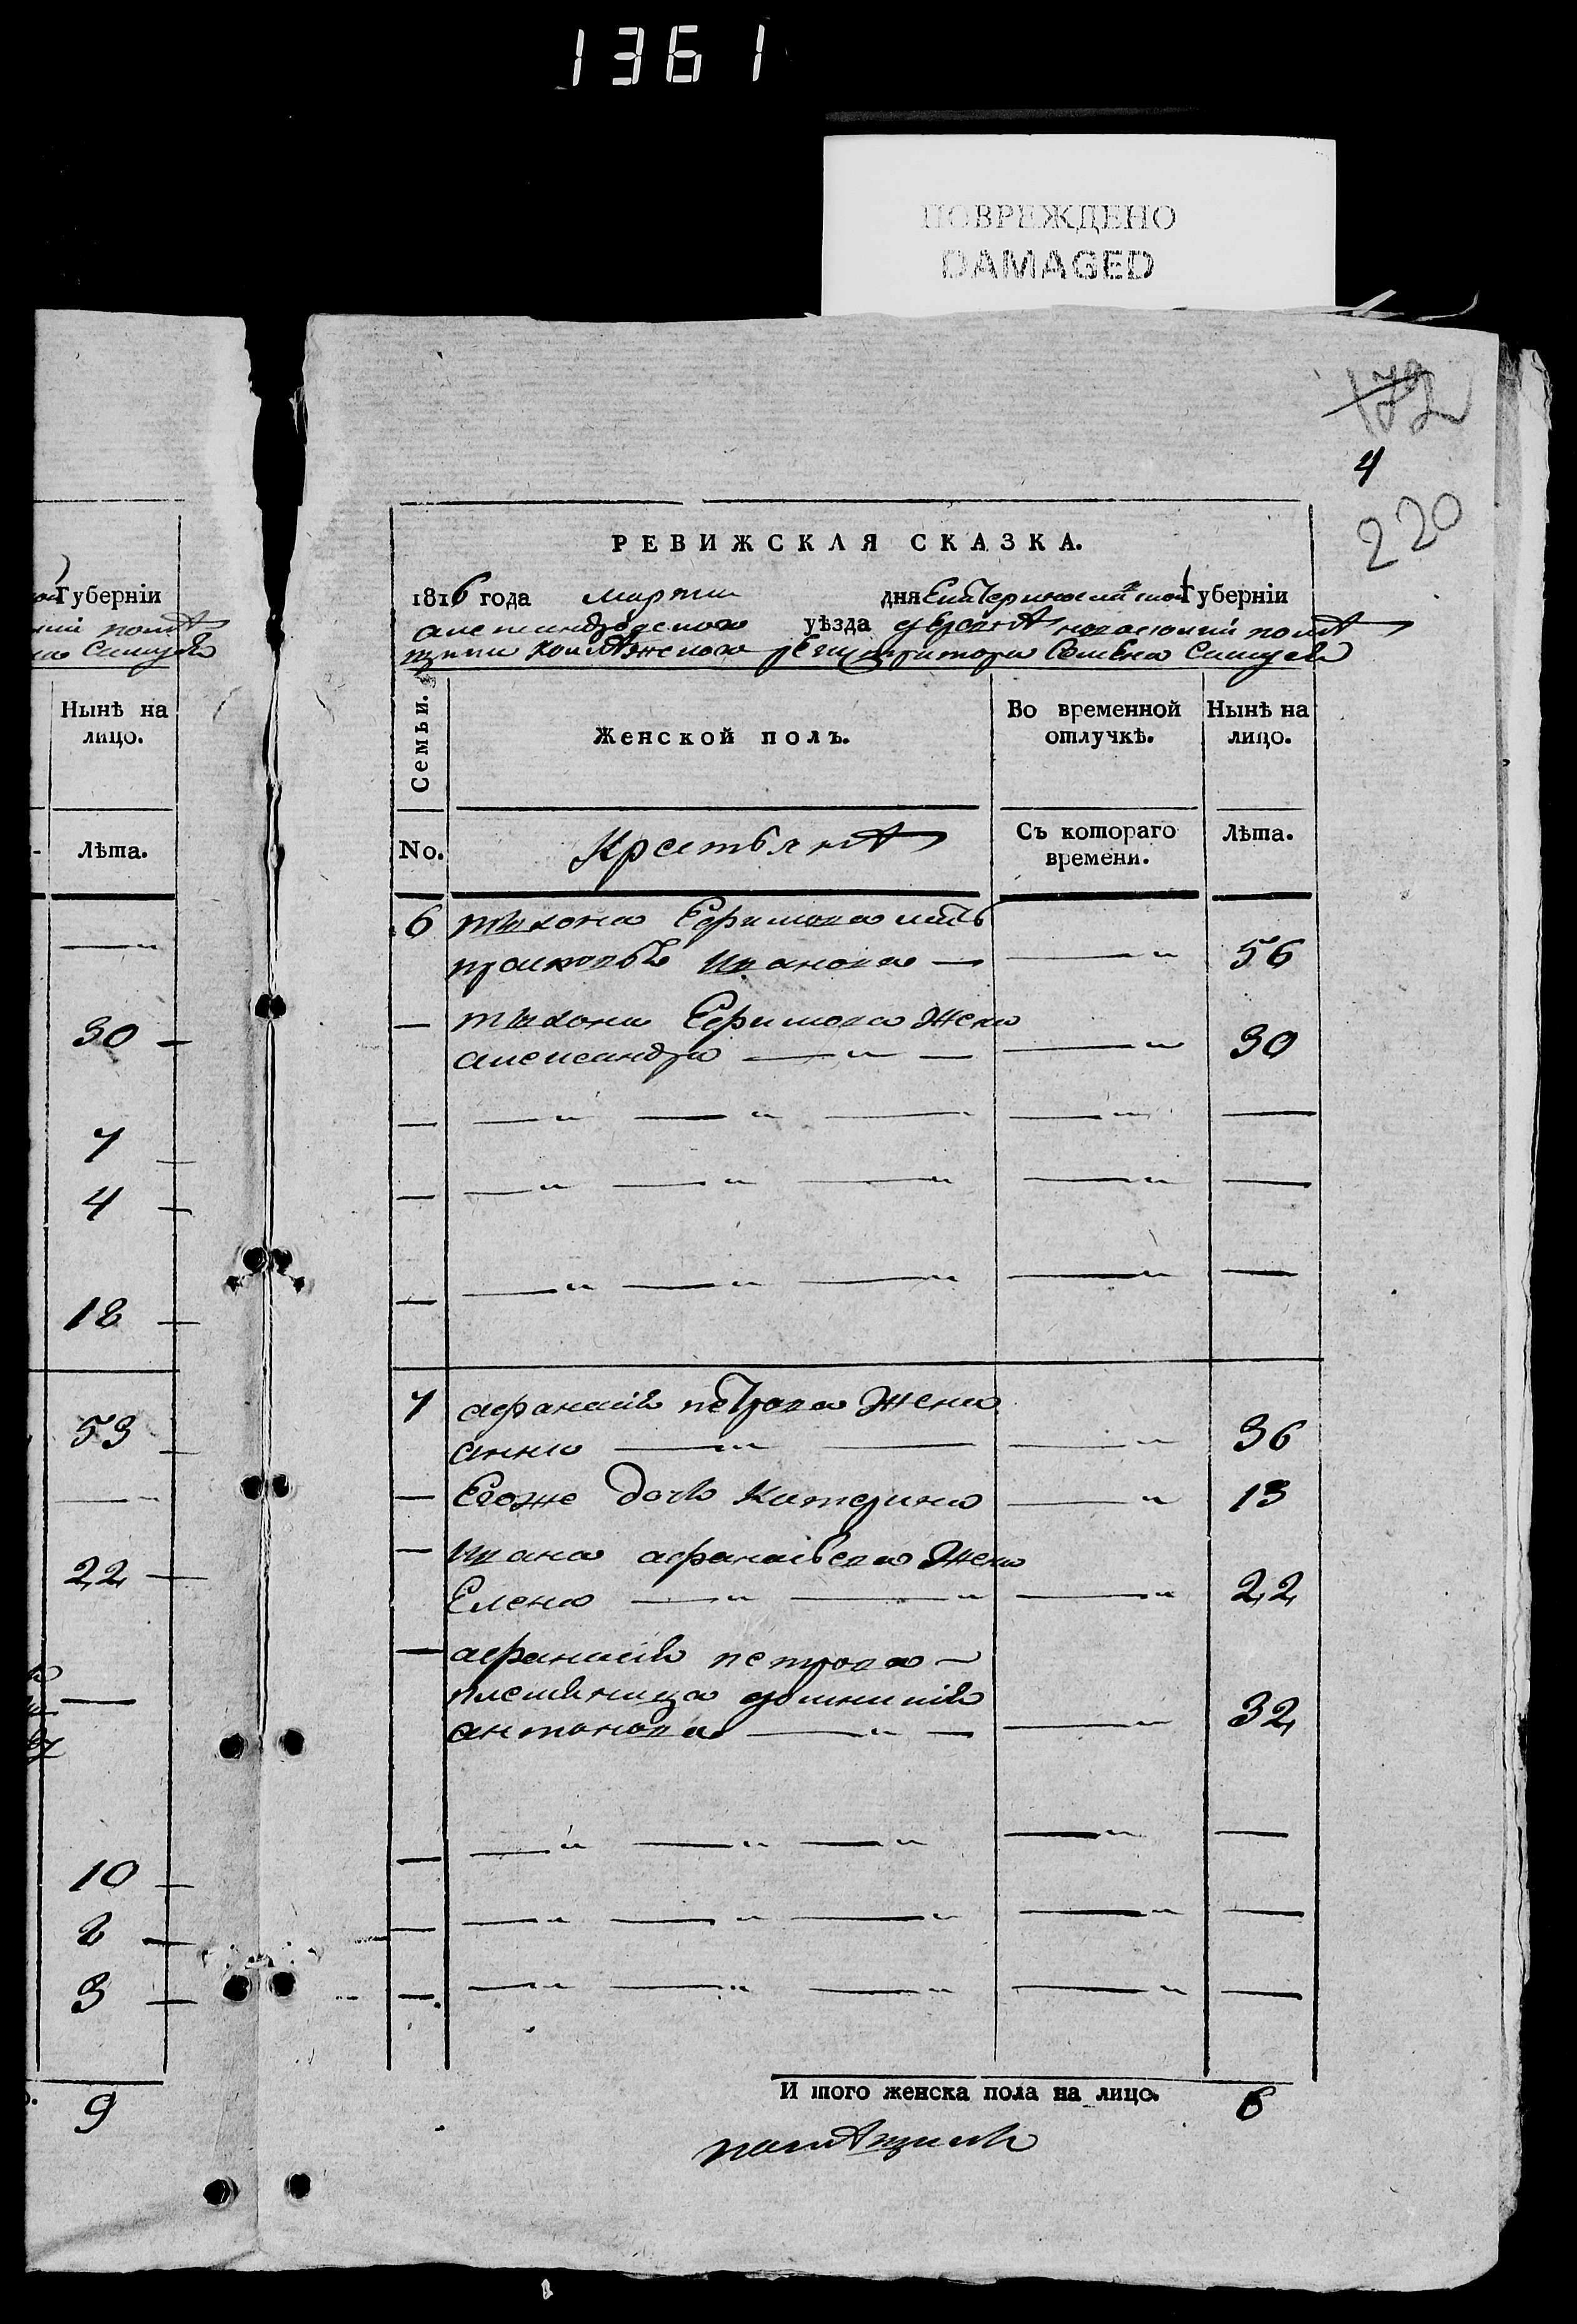 1361
ПОВРЕЖДЕНО
DAMAGED
172
4
220
Губерніи
помѣ
Нынѣ на
лицо.
Лѣта.
30
7
4
18
53
22
10
2
3
9
РЕВИЖСКАЯ СКАЗКА.
1816 года марта дня Екатеринославской Губерніи
александровского уѣзда помѣ
щика колѣжского регистратора Семена
Семьи.
Женской полъ.
Во временной отлучкѣ.
Нынѣ на лицо.
No.
Крестьянѣ
Съ котораго времени.
Лѣта.
6 тихона Ефимова мать
прасковья Иванова 56
тихона Ефимова жена
александра 30
7 афанасія петрова жена
анна 36
Егоже дочь катерина 13
Ивана афанасьева жена
Елена 22
афанасія петрова
племеница
антонова 32
И того женска пола на лицо. 6
помѣщикъ